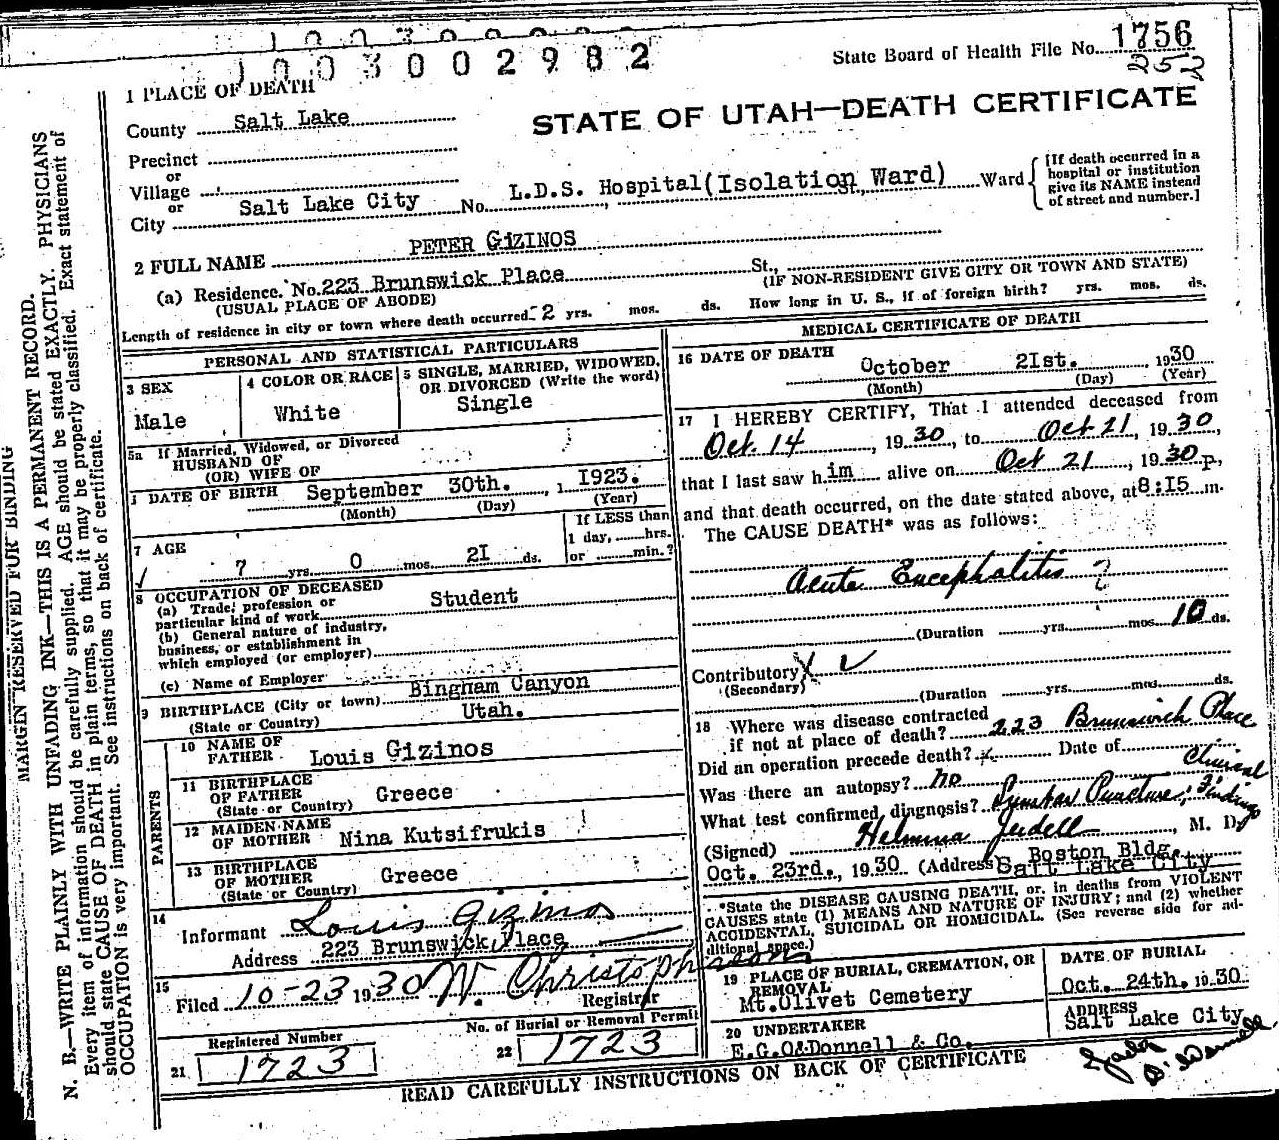 1003002982
State Board of Health File No. 1756
252
STATE OF UTAH—DEATH CERTIFICATE
1 PLACE OF DEATH
County Salt Lake
Precinct
or
Village
or
City Salt Lake City No. L.D.S. Hospital (Isolation Ward) Ward
[If death occurred in a
hospital or institution
give its NAME instead
of street and number.]
2 FULL NAME PETER GIZINOS
(a) Residence. No. 223 Brunswick Place St.,
(USUAL PLACE OF ABODE)
(IF NON-RESIDENT GIVE CITY OR TOWN AND STATE)
Length of residence in city or town where death occurred. 2 yrs. mos. ds. How long in U. S., if of foreign birth? yrs. mos. ds.
PERSONAL AND STATISTICAL PARTICULARS
3 SEX
Male
4 COLOR OR RACE
White
5 SINGLE, MARRIED, WIDOWED,
OR DIVORCED (Write the word)
Single
5a If Married, Widowed, or Divorced
HUSBAND OF
(OR) WIFE OF
DATE OF BIRTH September 30th. , 1923.
(Month) (Day) (Year)
7 AGE
7 yrs. 0 mos. 2I ds.
If LESS than
1 day, hrs.
or min.?
8 OCCUPATION OF DECEASED
(a) Trade, profession or
particular kind of work Student
(b) General nature of industry,
business, or establishment in
which employed (or employer)
(c) Name of Employer
9 BIRTHPLACE (City or town) Bingham Canyon
(State or Country) Utah.
PARENTS
10 NAME OF
FATHER Louis Gizinos
11 BIRTHPLACE
OF FATHER
(State or Country) Greece
12 MAIDEN NAME
OF MOTHER Nina Kutsifrukis
13 BIRTHPLACE
OF MOTHER
(State or Country) Greece
14
Informant Louis Gizinos
Address 223 Brunswick Place
15
Filed 10-23 1930 W. Christopherson
Registrar
Registered Number
21 1723
No. of Burial or Removal Permit
22 1723
MEDICAL CERTIFICATE OF DEATH
16 DATE OF DEATH
October 2Ist. , 1930
(Month) (Day) (Year)
17 I HEREBY CERTIFY, That I attended deceased from
Oct. 14, 1930, to Oct 21, 1930,
that I last saw him alive on Oct 21, 1930 p.,
and that death occurred, on the date stated above, at 8:I5 m.
The CAUSE DEATH* was as follows:
Acute Encephalitis ?
(Duration yrs. mos. 10 ds.
Contributory X
(Secondary)
(Duration yrs. mos. ds.
18 Where was disease contracted
if not at place of death? 223 Brunswick Place
Did an operation precede death? x Date of
Was there an autopsy? no
What test confirmed diagnosis? Lumbar Puncture; Clinical Findings
(Signed) Helmina Jeidell, M. D.
Oct. 23rd., 1930 (Address) Boston Bldg.
Salt Lake City
*State the DISEASE CAUSING DEATH, or, in deaths from VIOLENT
CAUSES state (1) MEANS AND NATURE OF INJURY; and (2) whether
ACCIDENTAL, SUICIDAL OR HOMICIDAL. (See reverse side for ad-
ditional space.)
19 PLACE OF BURIAL, CREMATION, OR
REMOVAL
Mt.Olivet Cemetery
DATE OF BURIAL
Oct. 24th. 1930
20 UNDERTAKER
E.G.O&Donnell & Co.
ADDRESS
Salt Lake City
READ CAREFULLY INSTRUCTIONS ON BACK OF CERTIFICATE
MARGIN RESERVED FOR BINDING
N. B.—WRITE PLAINLY WITH UNFADING INK—THIS IS A PERMANENT RECORD.
Every item of information should be carefully supplied. AGE should be stated EXACTLY. PHYSICIANS
should state CAUSE OF DEATH in plain terms, so that it may be properly classified. Exact statement of
OCCUPATION is very important. See instructions on back of certificate.